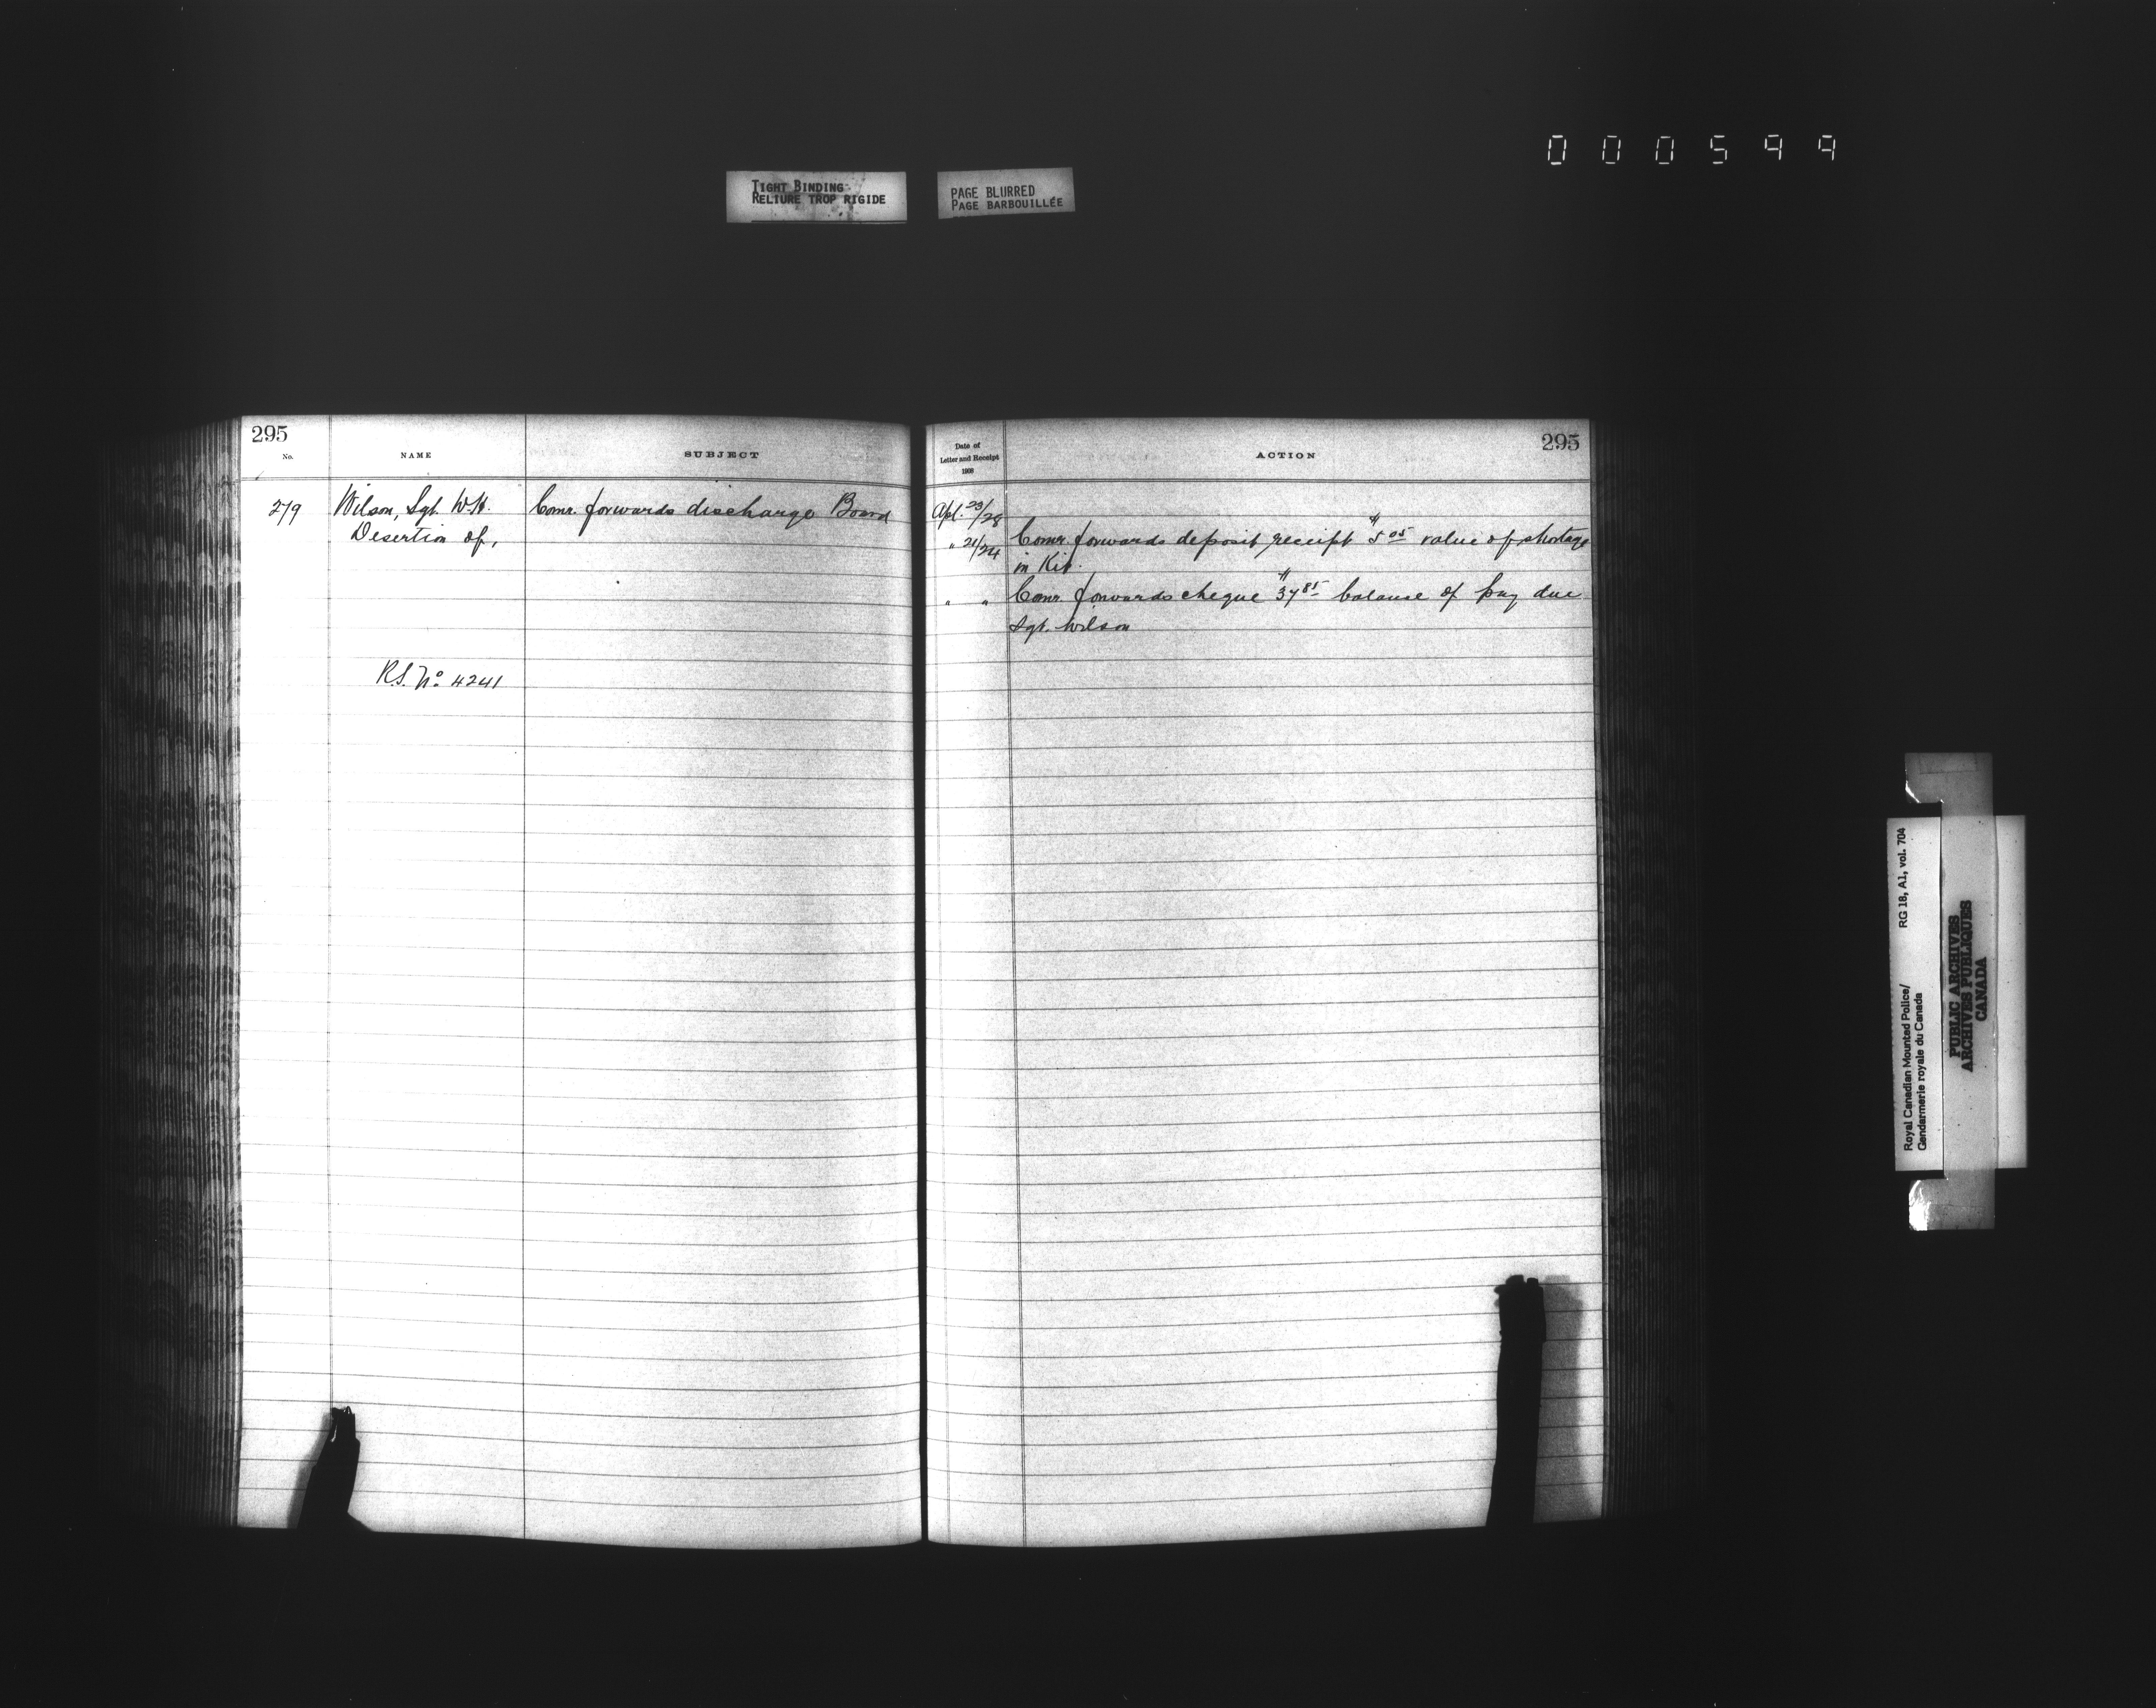 000599
TIGHT BINDING
RELIURE TROP RIGIDE
PAGE BLURRED
PAGE BARBOUILLÉE
295
No.
NAME
SUBJECT
279
Wilson, Sgt. W.H.
Comr. forwards discharge Board
Desertion of,
R.S. No 4241
295
Date of
Letter and Receipt
1908
ACTION
Apl. 23/28
" 21/24 Comr. forwards deposit receipt $5.05 value of shortage
in Kit.
" " Comr. forwards cheque $37.85 balance of pay due
Sgt. Wilson
Royal Canadian Mounted Police/
Gendarmerie royale du Canada
RG 18, A1, vol. 704
PUBLIC ARCHIVES
ARCHIVES PUBLIQUES
CANADA